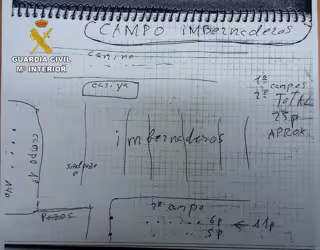 CAMPO iMBernaderos
GUARDIA CIVIL
Mº INTERIOR
camino
casiya
1º
2º campos
TOTAL
25p
APROX
campo 1º
14p
imbernaderos
POZOS
2º campo
6p
5p
11p